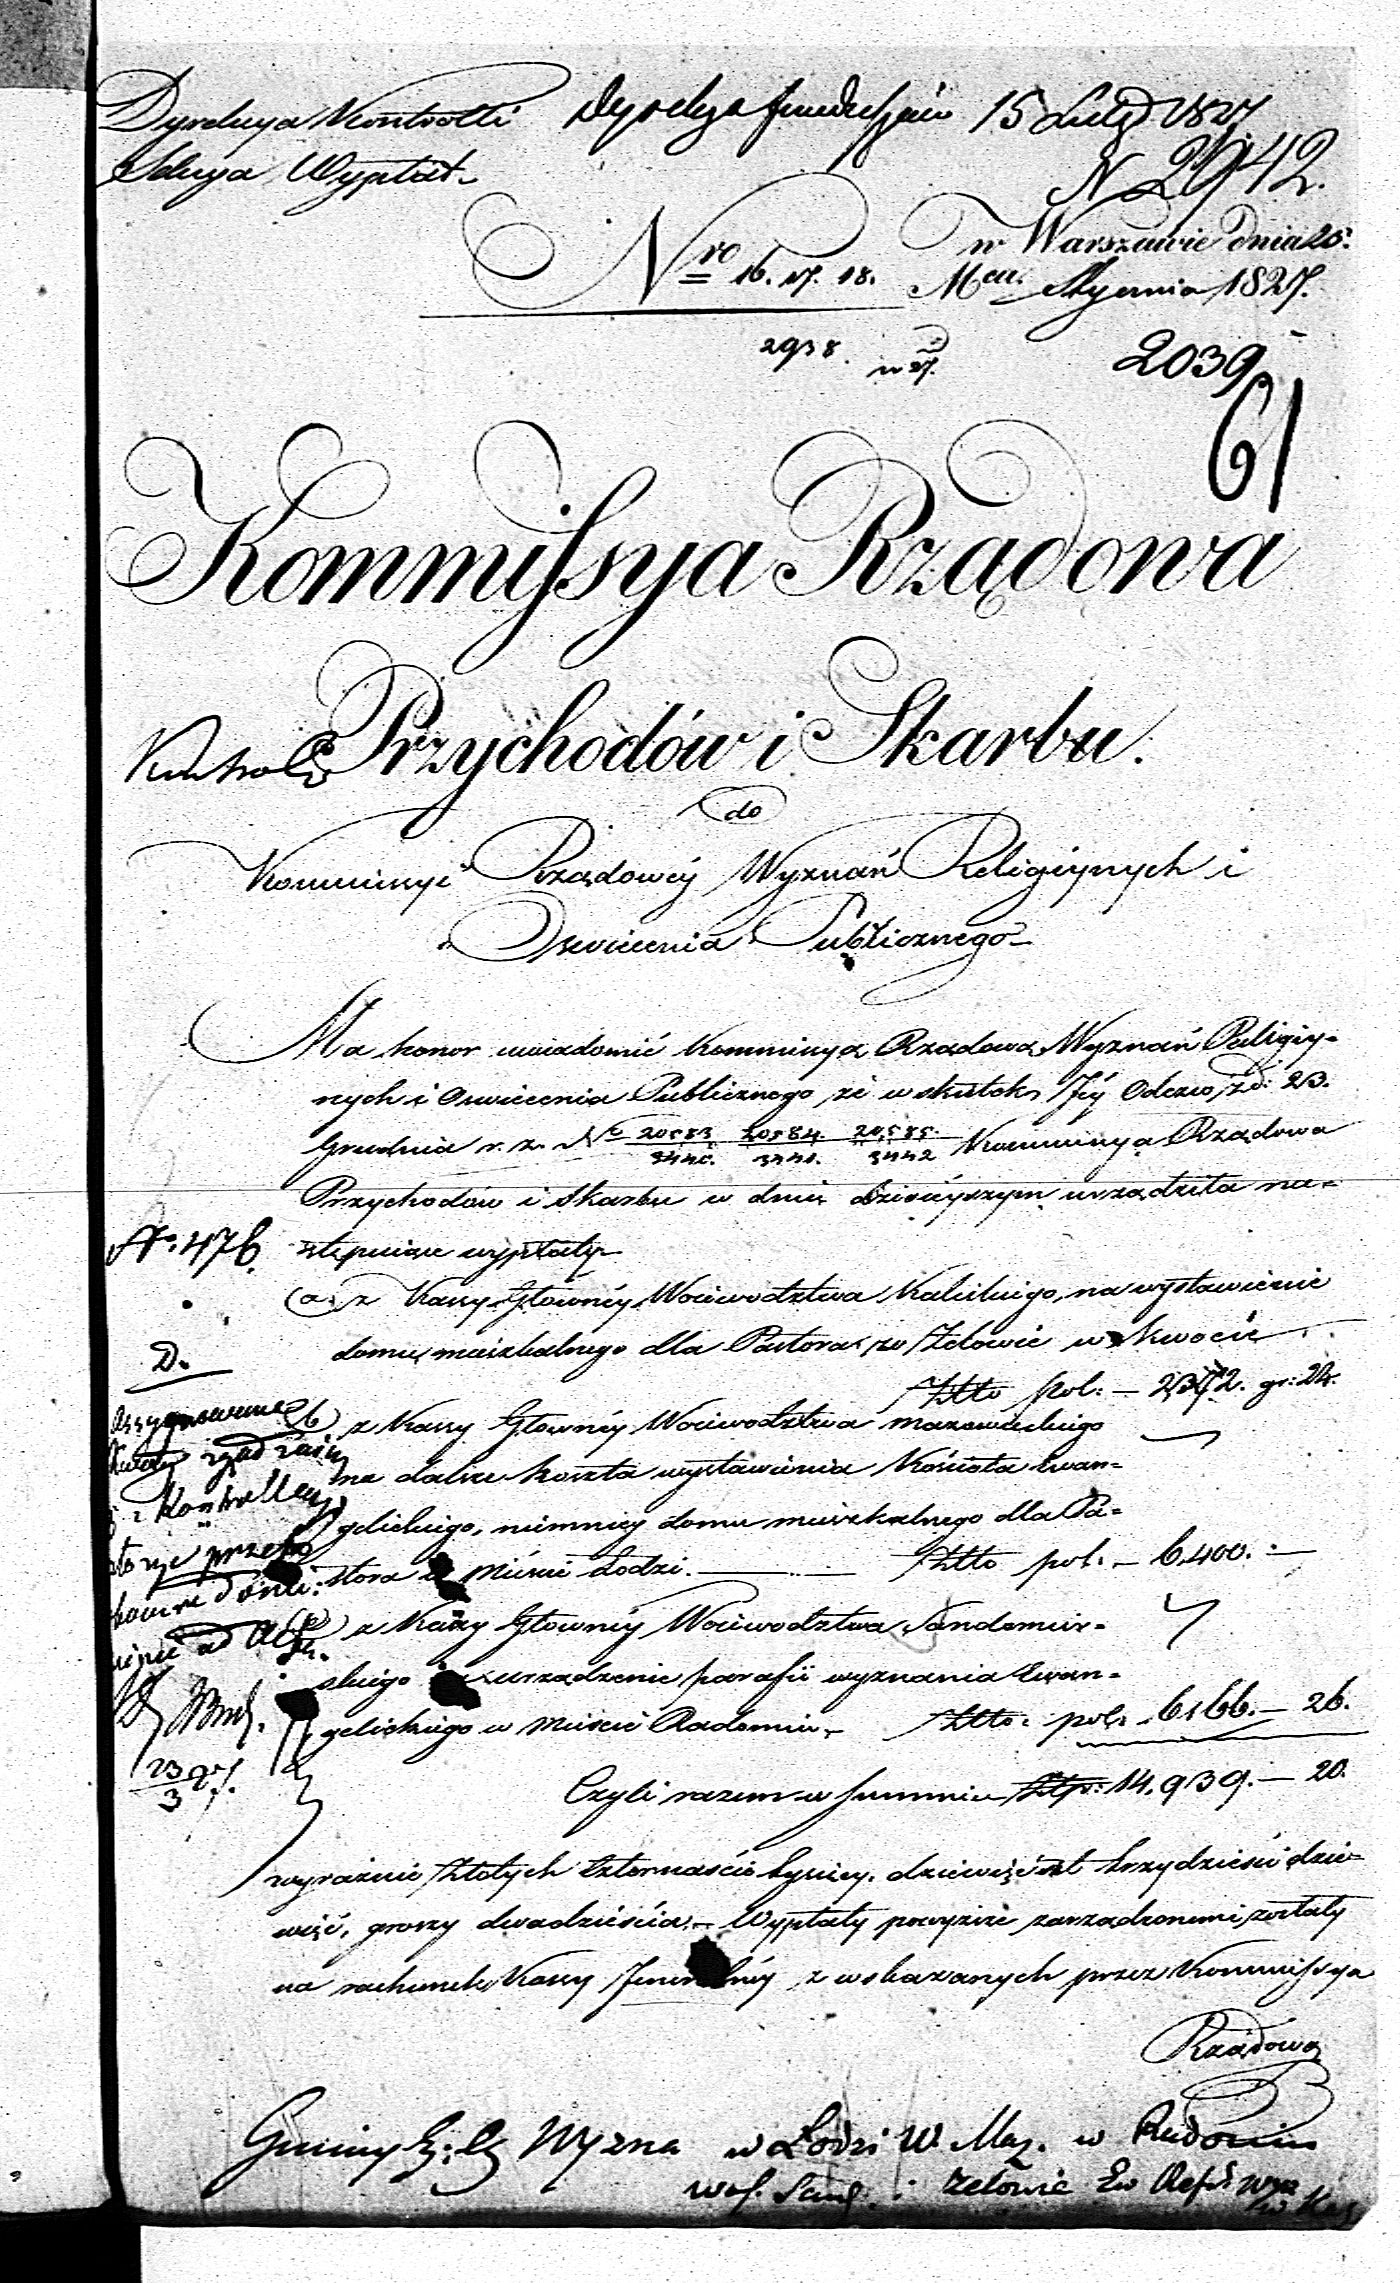 Dyrekcya Kontrolli
Dyrekcya funduszów 15 Luty 1827
Sekcya Wypłat.
N 2942.
Nro 16. 17. 18.
w Warszawie dnia 25.
Mca Stycznia 1827.
2938.
w 27.
2039
61
Kommissya Rządowa
Przychodów i Skarbu.
do
Kommissyi Rządowéy Wyznań Religiynych i
Oświecenia Publicznego
Ma honor uwiadomić Kommissyą Rządową Wyznań Religiy-
nych i Oświecenia Publicznego, że w skutek Jéy Odezw z d: 23.
Grudnia r. z. No 20583/3440. 20584/3441. 20585./3442 Kommissya Rządowa
Przychodów i Skarbu w dniu dzisieyszym urządziła na-
stępuiące wypłaty
No. 476.
a, z Kassy Głównéy Woiewodztwa Kaliskiego, na wystawienie
domu mieszkalnego dla Pastora w Zelowie w kwocie
D.
Złto pol: — 2372. gr: 24.
b) z Kassy Głównéy Woiewodztwa Mazowieckiego
na dalsze koszta wystawienia Kościoła Ewan-
gelickiego, niemniey domu mieszkalnego dla Pa-
stora w Mieście Łodzi. — Złto pol. — 6400. —
c) z Kassy Głównéy Woiewodztwa Sandomir-
skiego na urządzenie parafii wyznania Ewan-
gelickiego w Mieście Radomiu, Złto: pol. 6166. — 26.
23/3 27.
Czyli razem w Summie Złtp: 14,939. — 20.
wyraźnie Złotych czternaście tysięcy, dziewięćset trzydzieści dzie-
więć, groszy dwadzieścia. — Wypłaty powyższe zarządzonemi zostały
na rachunek Kassy Jeneralnéy z wskazanych przez Kommissyą
Rządową
Gminy w Łodzi W. Maz. w Radomiu
Zelowie